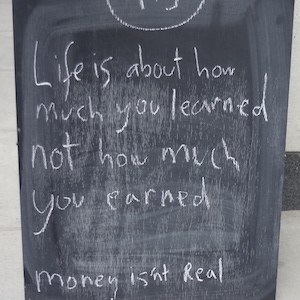 Life is about how
much you learned
not how much
you earned
money isn't Real